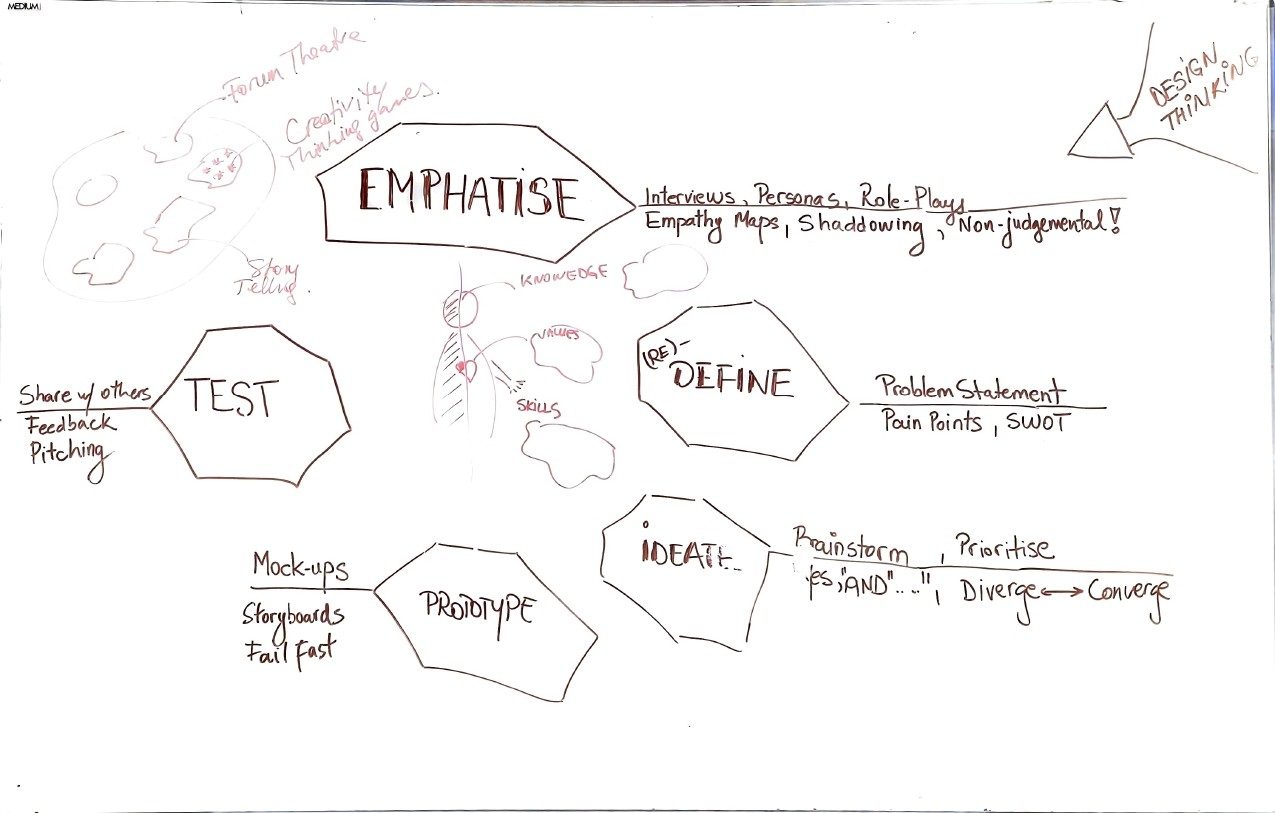 MEDIUM
Forum Theatre
Creativity
Thinking games.
Story
Telling.
DESIGN
THINKING
EMPHATISE
Interviews, Personas, Role-Plays
Empathy Maps, Shaddowing, Non-judgemental!
KNOWEDGE
VALUES
SKILLS
(RE)-
DEFINE
Problem Statement
Pain Points, SWOT
TEST
Share w/ others
Feedback
Pitching
IDEATE
Brainstorm, Prioritise
Yes, "AND"...", Diverge↔Converge
PROTOTYPE
Mock-ups
Storyboards
Fail Fast